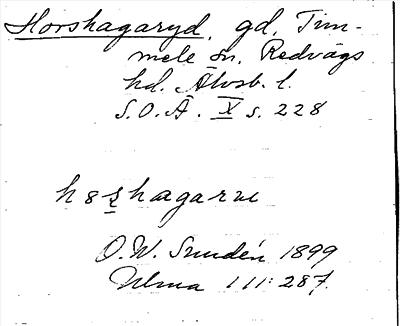 Horshagaryd, gd, Tim-
mele sn, Redvägs
hd. Älvsb. l.
S.O.Ä. X s. 228
O.W. Sundén 1899
Ulma 111:287.